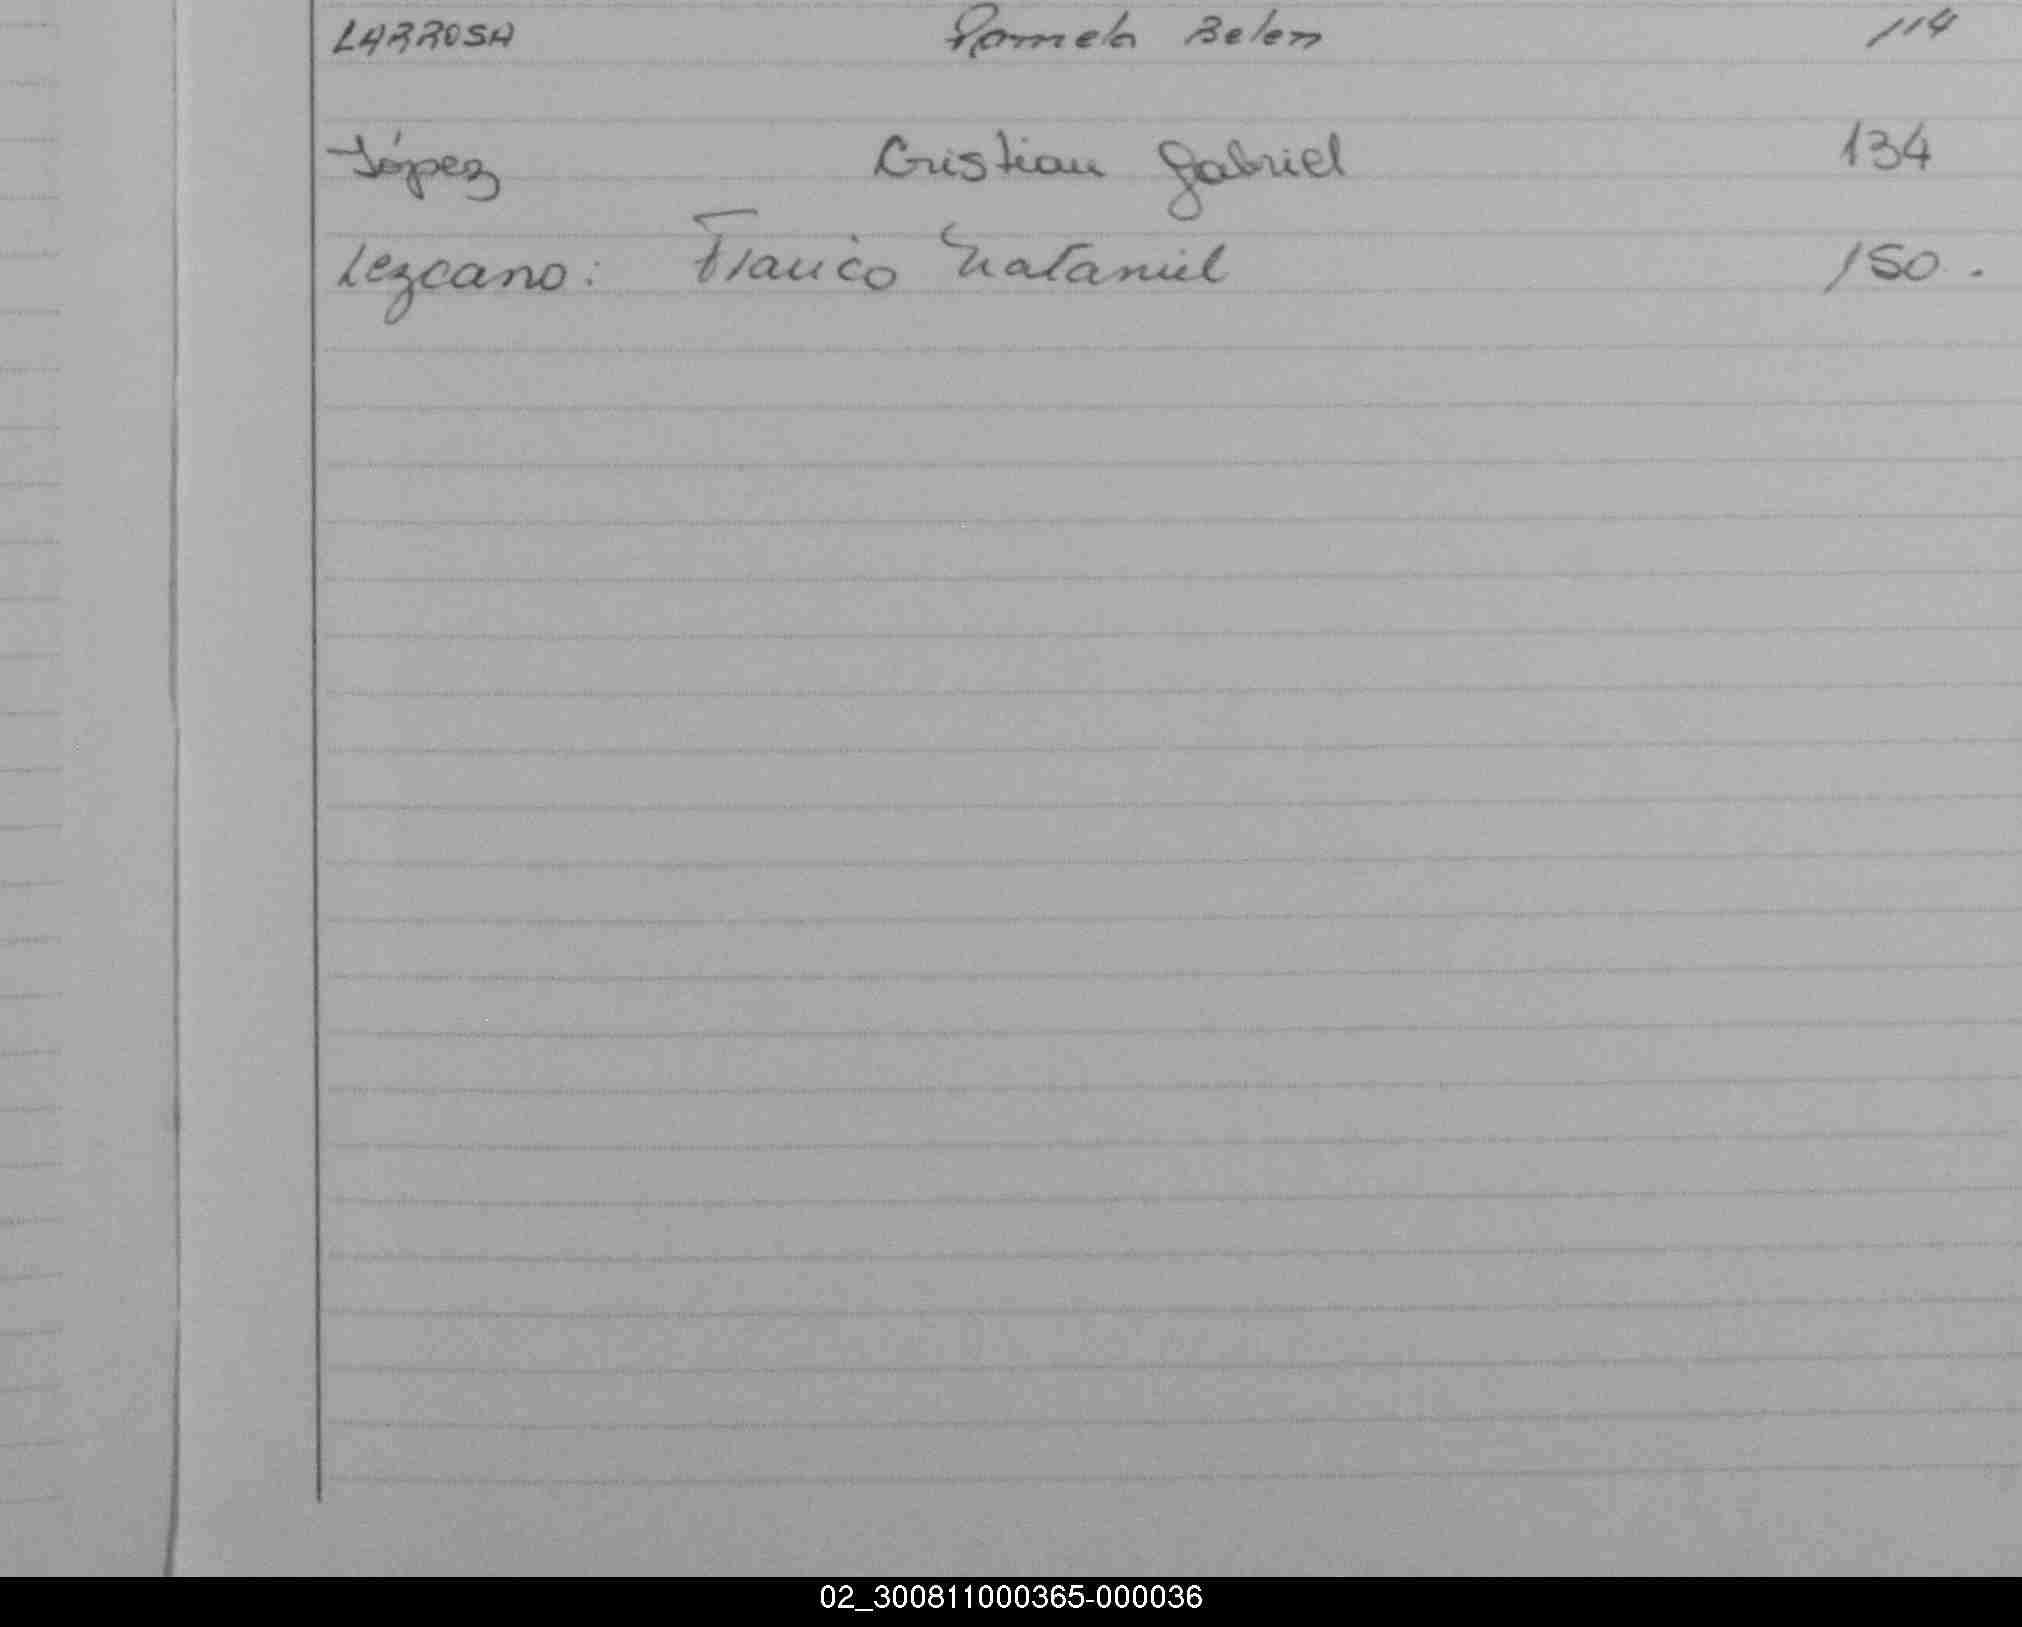 LARROSA Pamela Belen 114
López Cristian Gabriel 134
Lezcano: Franco Nataniel 150.
02_300811000365-000036